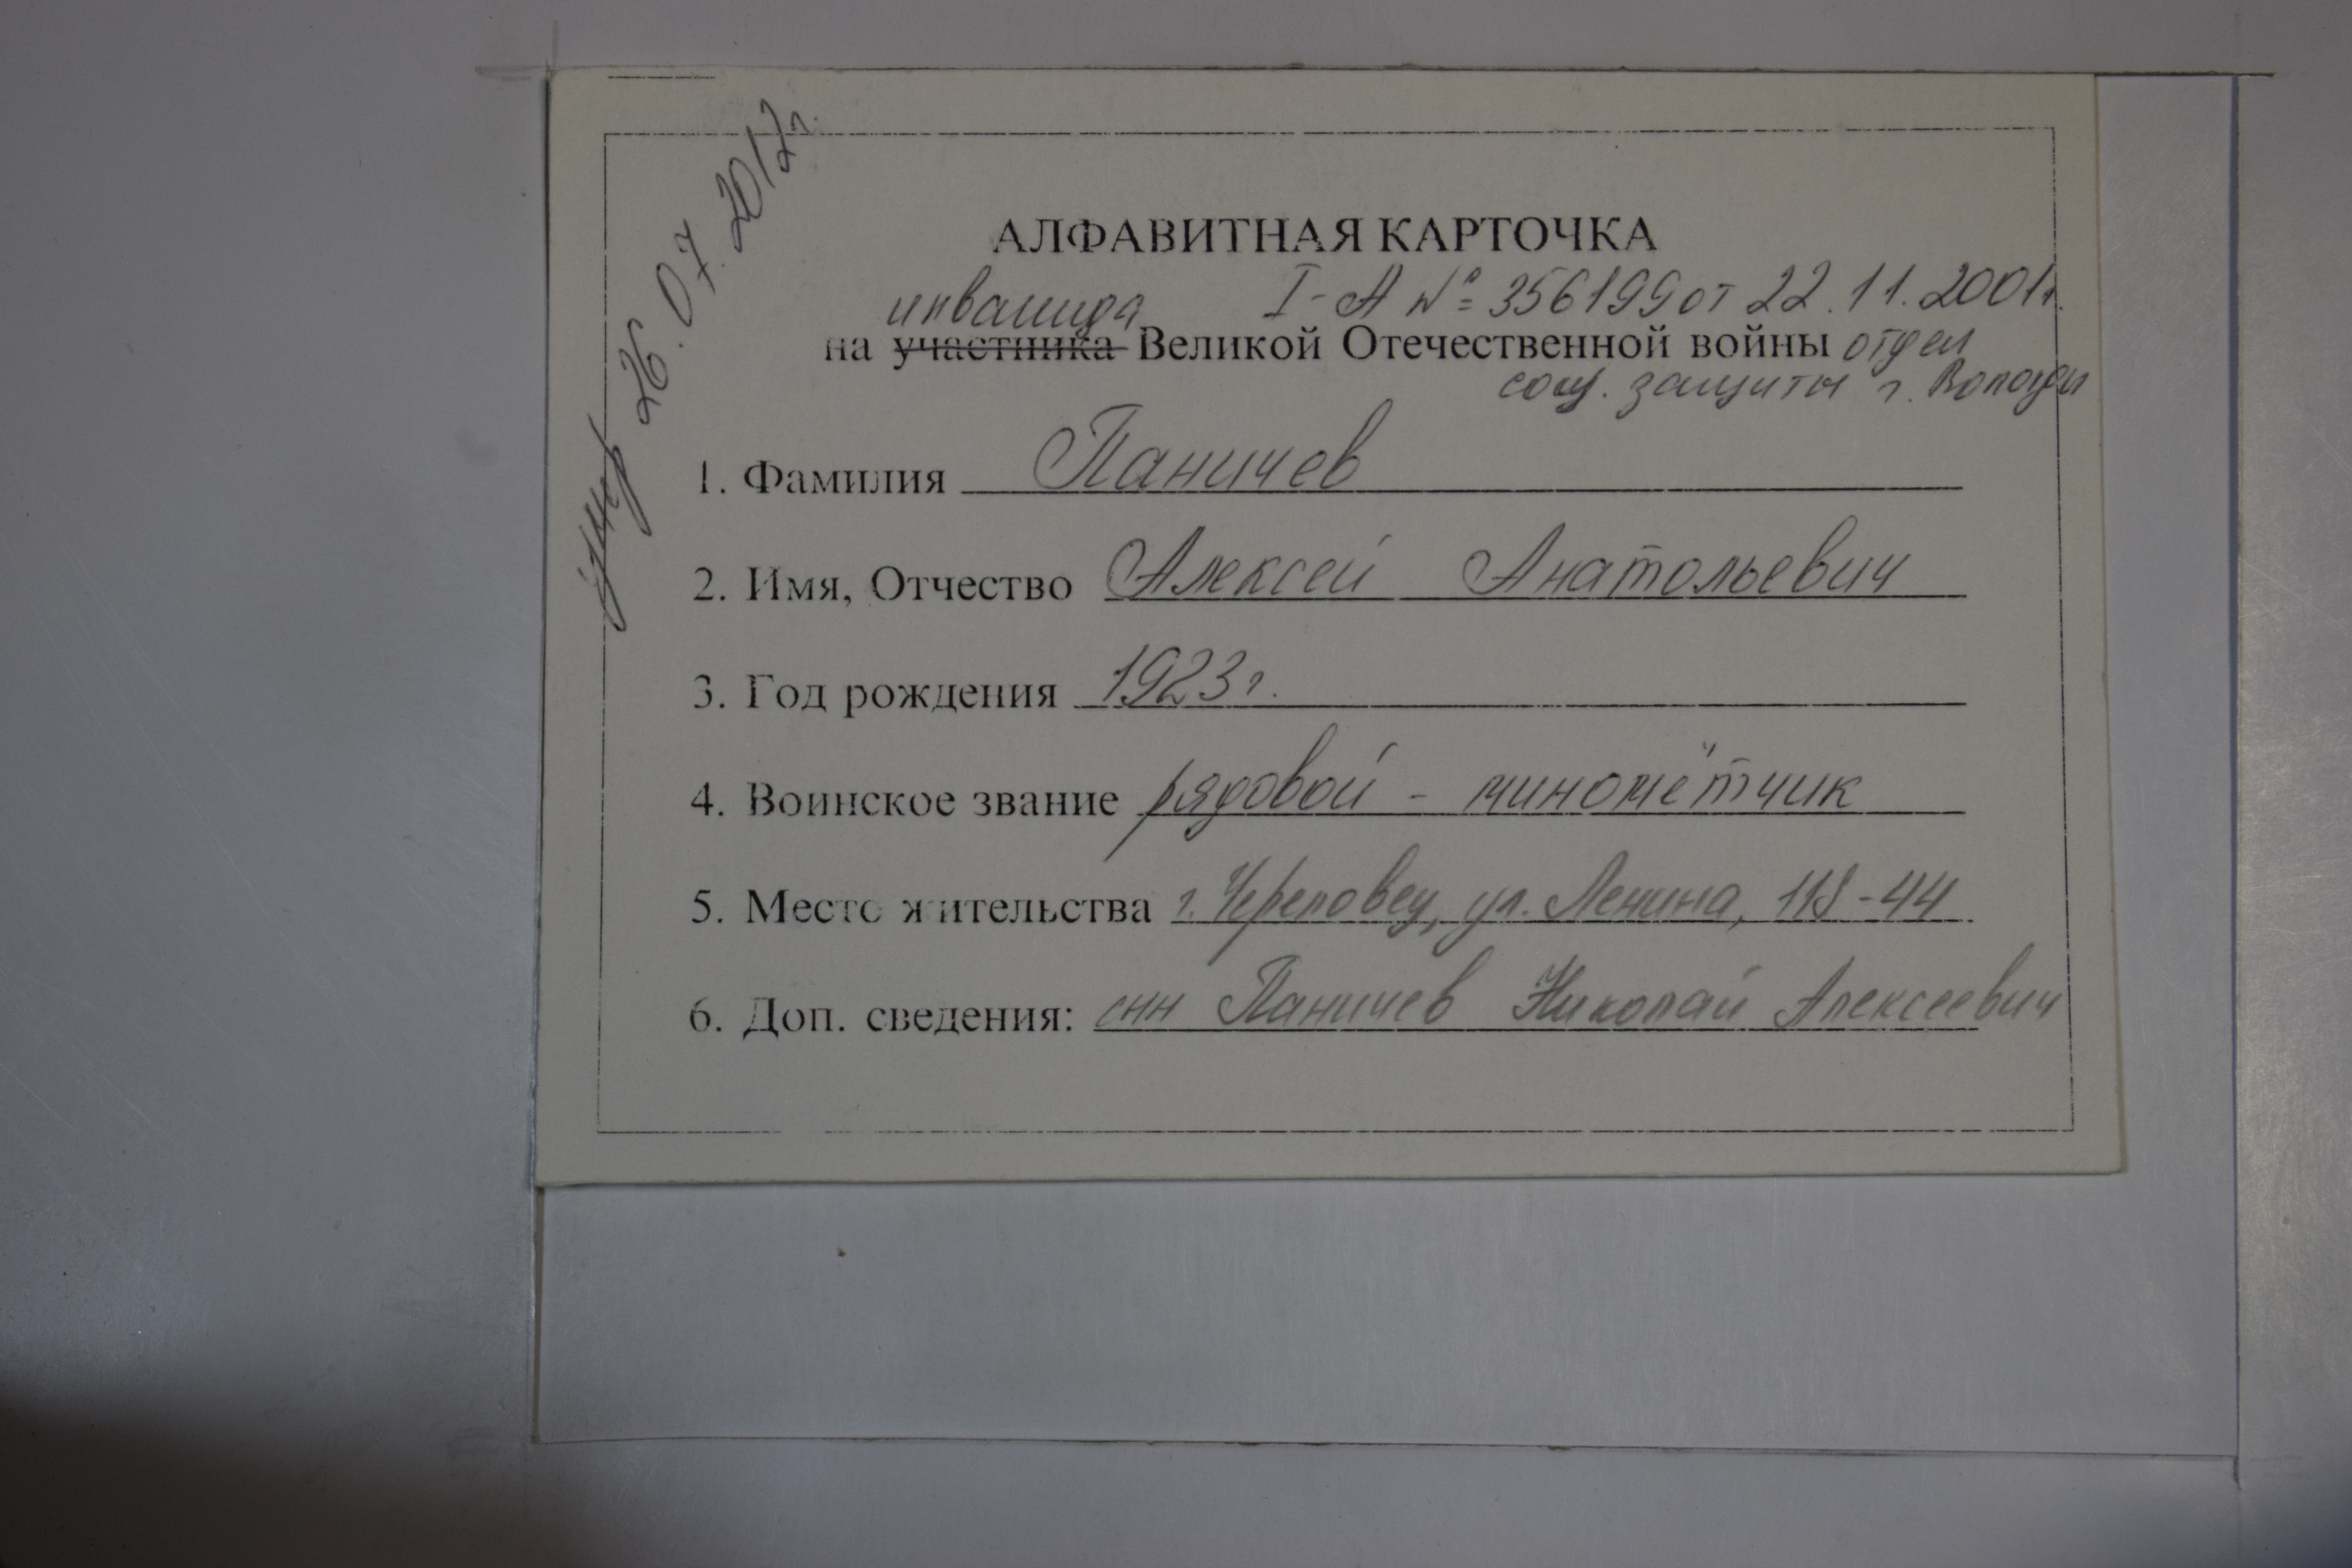 умер 26.07.2012г.
АЛФАВИТНАЯ КАРТОЧКА
инвалида I-А №356199 от 22.11.2001г.
на участника Великой Отечественной войны отдел
соц. защиты г. Вологды
1. Фамилия Паничев
2. Имя, Отчество Алексей Анатольевич
3. Год рождения 1923г.
4. Воинское звание рядовой - миномётчик
5. Место жительства г. Череповец, ул. Ленина, 118-44
6. Доп. сведения: сын Паничев Николай Алексеевич